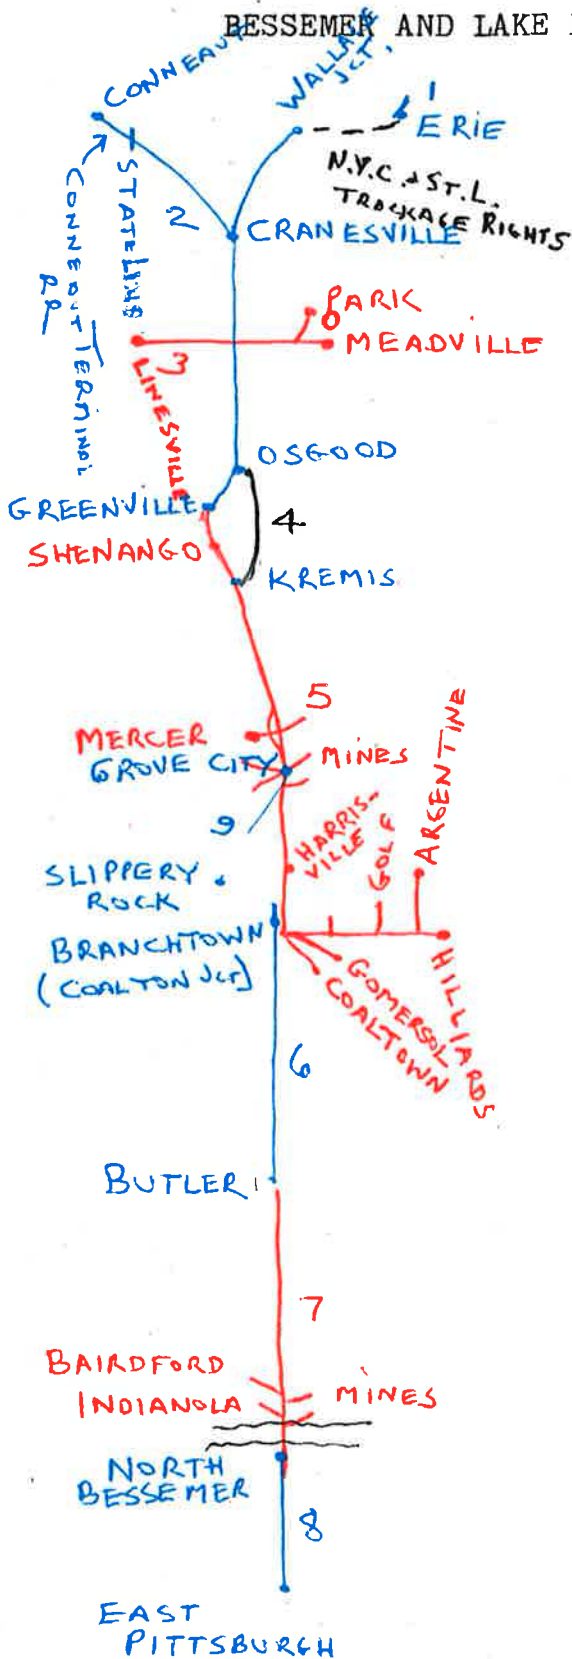 BESSEMER AND LAKE
CONNEAUT
WALLACE
JCT.
1
ERIE
N.Y.C. & ST. L.
TRACKAGE RIGHTS
STATELINE
CONNEOUT TERMINAL
RR
2
CRANESVILLE
PARK
MEADVILLE
3
LINESVILLE
OSGOOD
GREENVILLE
4
SHENANGO
KREMIS
5
MERCER
GROVE CITY
MINES
ARGENTINE
9
HARRIS-
VILLE
GOLF
SLIPPERY
ROCK
BRANCHTOWN
(COALTON JCT)
HILLIARDS
GOMERSOL
COALTOWN
6
BUTLER
7
BAIRDFORD
INDIANOLA
MINES
NORTH
BESSEMER
8
EAST
PITTSBURGH